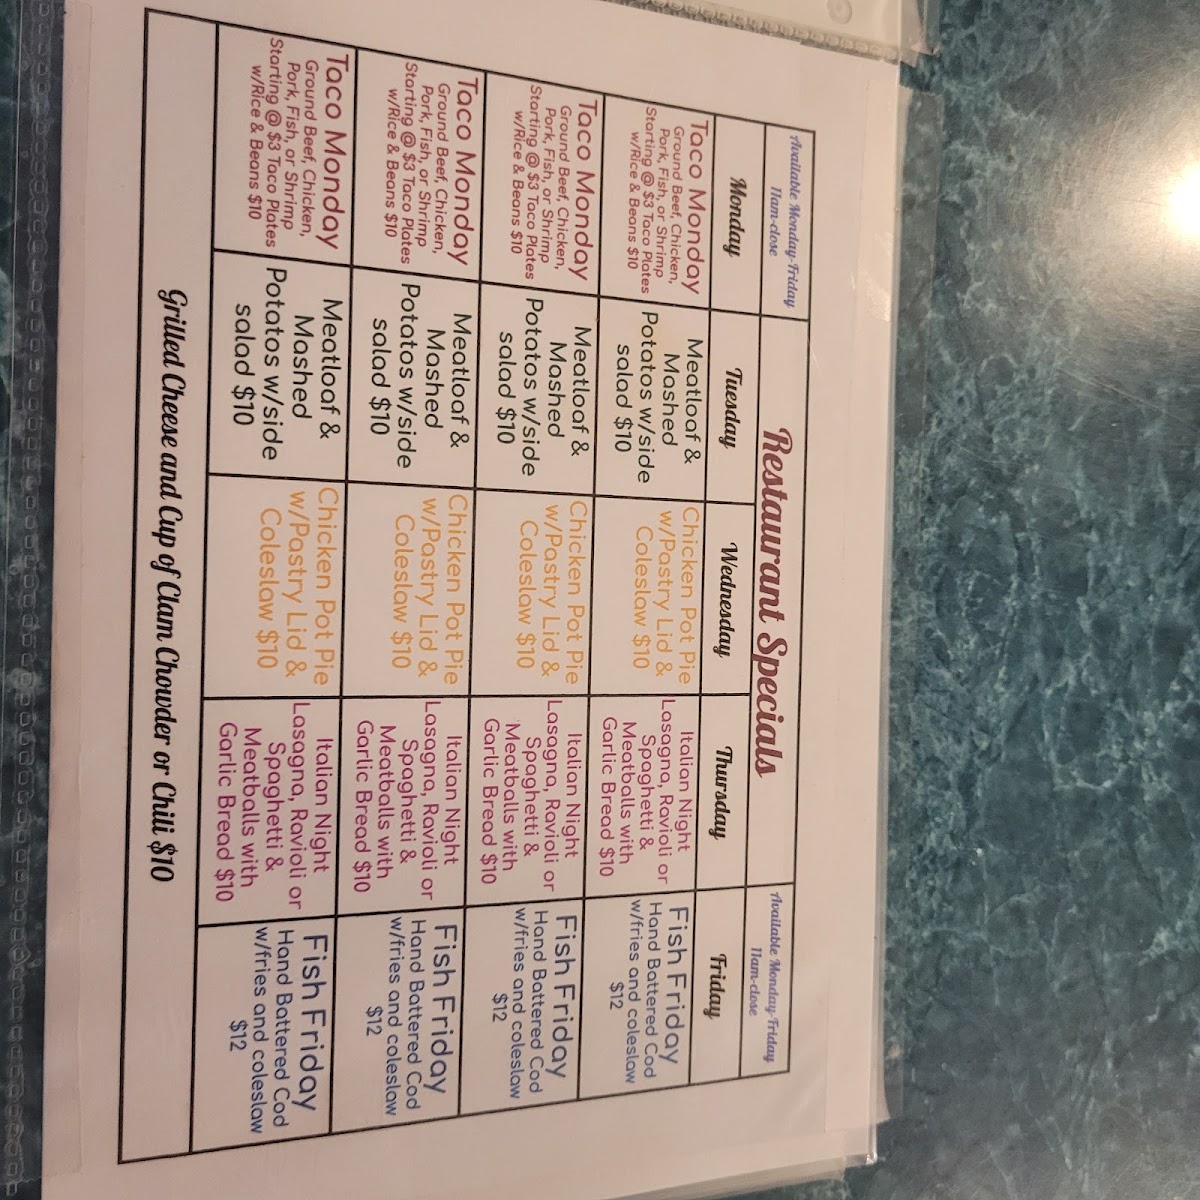 Available Monday-Friday
11am-close
Restaurant Specials
Available Monday-Friday
11am-close
Monday
Tuesday
Wednesday
Thursday
Friday
Taco Monday
Ground Beef, Chicken,
Pork, Fish, or Shrimp
Starting @ $3 Taco Plates
w/Rice & Beans $10
Meatloaf &
Mashed
Potatos w/side
salad $10
Chicken Pot Pie
w/Pastry Lid &
Coleslaw $10
Italian Night
Lasagna, Ravioli or
Spaghetti &
Meatballs with
Garlic Bread $10
Fish Friday
Hand Battered Cod
w/fries and coleslaw
$12
Taco Monday
Ground Beef, Chicken,
Pork, Fish, or Shrimp
Starting @ $3 Taco Plates
w/Rice & Beans $10
Meatloaf &
Mashed
Potatos w/side
salad $10
Chicken Pot Pie
w/Pastry Lid &
Coleslaw $10
Italian Night
Lasagna, Ravioli or
Spaghetti &
Meatballs with
Garlic Bread $10
Fish Friday
Hand Battered Cod
w/fries and coleslaw
$12
Taco Monday
Ground Beef, Chicken,
Pork, Fish, or Shrimp
Starting @ $3 Taco Plates
w/Rice & Beans $10
Meatloaf &
Mashed
Potatos w/side
salad $10
Chicken Pot Pie
w/Pastry Lid &
Coleslaw $10
Italian Night
Lasagna, Ravioli or
Spaghetti &
Meatballs with
Garlic Bread $10
Fish Friday
Hand Battered Cod
w/fries and coleslaw
$12
Taco Monday
Ground Beef, Chicken,
Pork, Fish, or Shrimp
Starting @ $3 Taco Plates
w/Rice & Beans $10
Meatloaf &
Mashed
Potatos w/side
salad $10
Chicken Pot Pie
w/Pastry Lid &
Coleslaw $10
Italian Night
Lasagna, Ravioli or
Spaghetti &
Meatballs with
Garlic Bread $10
Fish Friday
Hand Battered Cod
w/fries and coleslaw
$12
Grilled Cheese and Cup of Clam Chowder or Chili $10